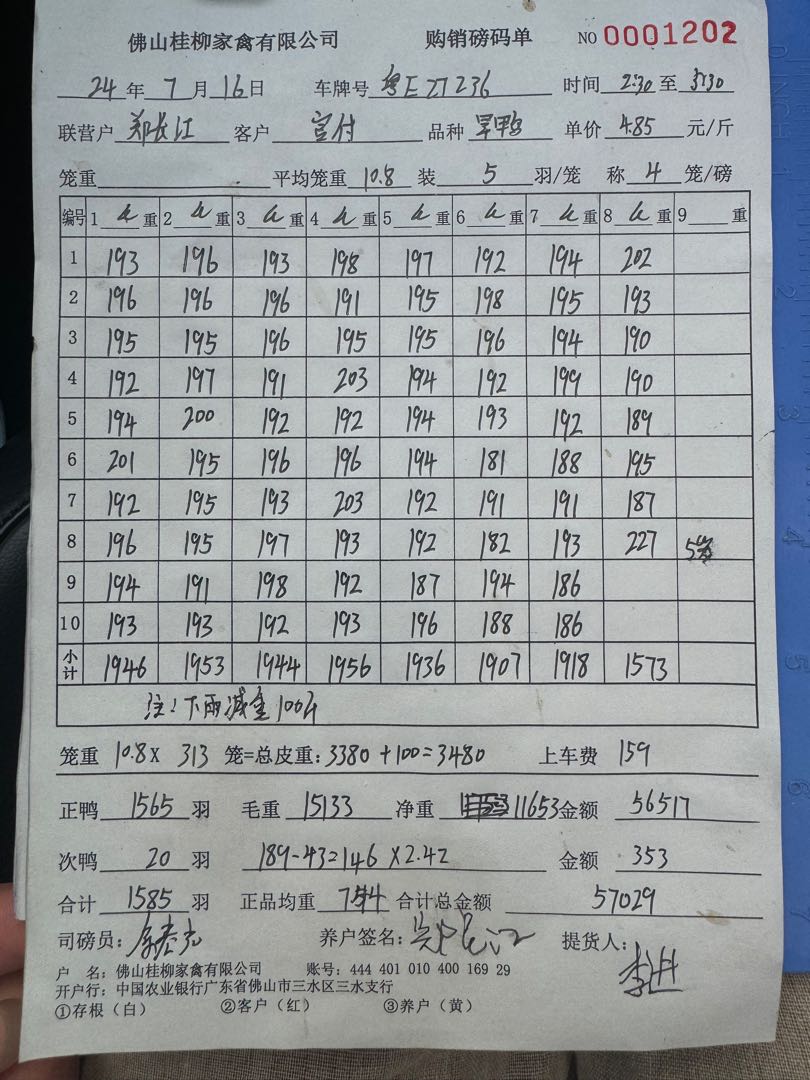 佛山桂柳家禽有限公司 购销磅码单 NO 0001202
24年7月16日 车牌号 粤E27236 时间 2:30至3:30
联营户 郑长江 客户 宣付 品种 旱鸭 单价 4.85 元/斤
笼重 平均笼重 10.8 装 5 羽/笼 称 4 笼/磅
编号 1 重 2 重 3 重 4 重 5 重 6 重 7 重 8 重 9 重
1 193 196 193 198 197 192 194 202
2 196 196 196 191 195 198 195 193
3 195 195 196 195 195 196 194 190
4 192 197 191 203 194 192 199 190
5 194 200 192 192 194 193 192 189
6 201 195 196 196 194 181 188 195
7 192 195 193 203 192 191 191 187
8 196 195 197 193 192 182 193 227
9 194 191 198 192 187 194 186
10 193 193 192 193 196 188 186
小计 1946 1953 1944 1956 1936 1907 1918 1573
注:下雨减重100斤
笼重 10.8× 313 笼=总皮重:3380+100=3480 上车费 159
正鸭 1565 羽 毛重 15133 净重 11653 金额 56517
次鸭 20 羽 189-43=146×2.42 金额 353
合计 1585 羽 正品均重 合计总金额 57029
司磅员: 养户签名: 提货人:李进
户 名:佛山桂柳家禽有限公司 账号:444 401 010 400 169 29
开户行:中国农业银行广东省佛山市三水区三水支行
①存根(白) ②客户(红) ③养户(黄)